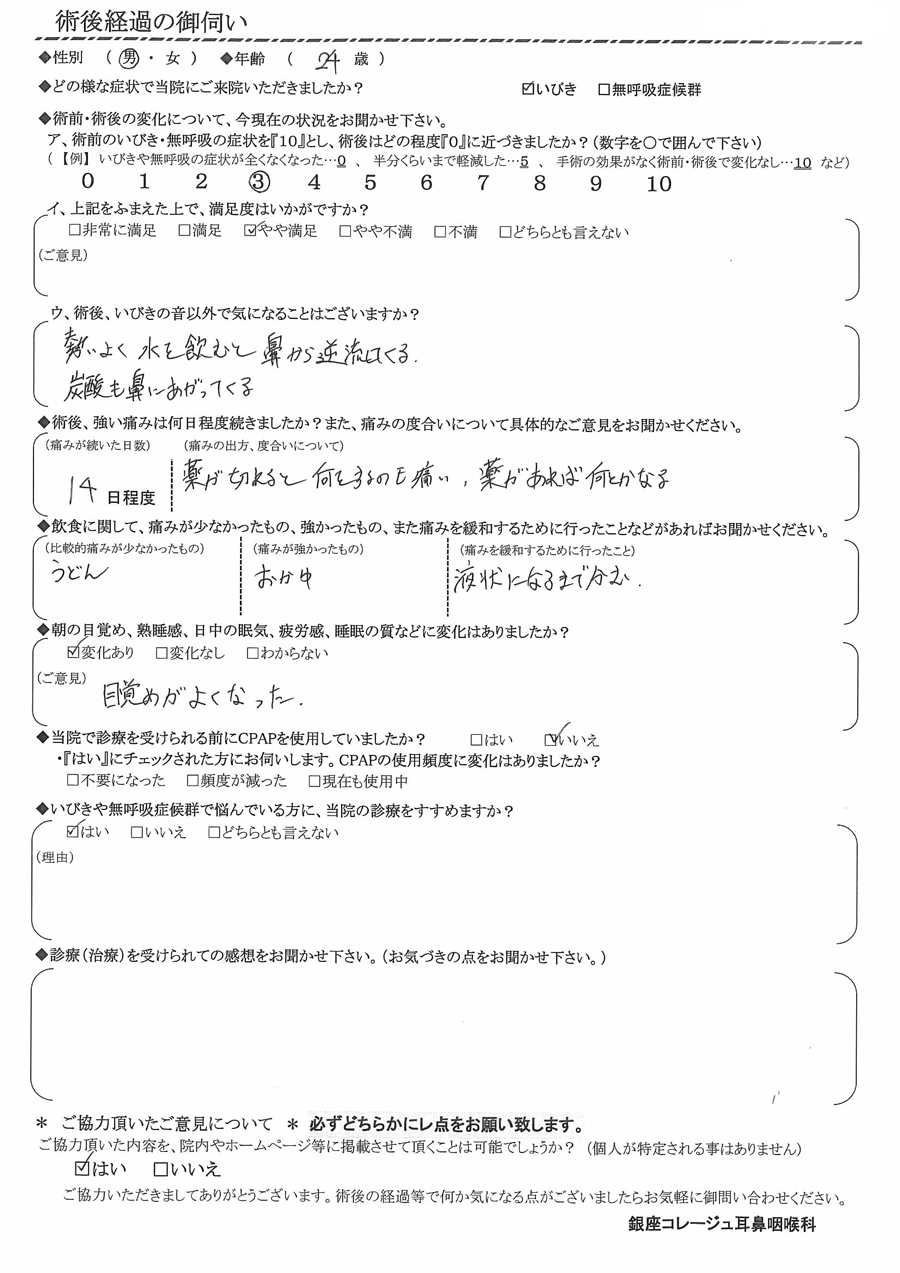 術後経過の御伺い
◆性別 （ 男 ・ 女 ） ◆年齢 （ 24 歳 ）
◆どの様な症状で当院にご来院いただきましたか？ ☑いびき □無呼吸症候群
◆術前・術後の変化について、今現在の状況をお聞かせ下さい。
ア、術前のいびき・無呼吸の症状を『10』とし、術後はどの程度『0』に近づきましたか？（数字を〇で囲んで下さい）
（【例】 いびきや無呼吸の症状が全くなくなった…0 、 半分くらいまで軽減した…5 、 手術の効果がなく術前・術後で変化なし…10 など）
0 1 2 ③ 4 5 6 7 8 9 10
イ、上記をふまえた上で、満足度はいかがですか？
□非常に満足 □満足 ☑やや満足 □やや不満 □不満 □どちらとも言えない
（ご意見）
ウ、術後、いびきの音以外で気になることはございますか？
勢いよく 水を飲むと 鼻から逆流してくる.
炭酸も鼻にあがってくる
◆術後、強い痛みは何日程度続きましたか？また、痛みの度合いについて具体的なご意見をお聞かせください。
（痛みが続いた日数） （痛みの出方、度合いについて）
14 日程度 薬が切れると 何をするのも痛い, 薬があれば何とかなる
◆飲食に関して、痛みが少なかったもの、強かったもの、また痛みを緩和するために行ったことなどがあればお聞かせください。
（比較的痛みが少なかったもの） （痛みが強かったもの） （痛みを緩和するために行ったこと）
うどん おかゆ 液状になるまでかむ.
◆朝の目覚め、熟睡感、日中の眠気、疲労感、睡眠の質などに変化はありましたか？
☑変化あり □変化なし □わからない
（ご意見）
目覚めがよくなった.
◆当院で診療を受けられる前にCPAPを使用していましたか？ □はい ☑いいえ
・『はい』にチェックされた方にお伺いします。CPAPの使用頻度に変化はありましたか？
□不要になった □頻度が減った □現在も使用中
◆いびきや無呼吸症候群で悩んでいる方に、当院の診療をすすめますか？
☑はい □いいえ □どちらとも言えない
（理由）
◆診療（治療）を受けられての感想をお聞かせ下さい。（お気づきの点をお聞かせ下さい。）
＊ ご協力頂いたご意見について ＊ 必ずどちらかにレ点をお願い致します。
ご協力頂いた内容を、院内やホームページ等に掲載させて頂くことは可能でしょうか？ （個人が特定される事はありません）
☑はい □いいえ
ご協力いただきましてありがとうございます。術後の経過等で何か気になる点がございましたらお気軽に御問い合わせください。
銀座コレージュ耳鼻咽喉科